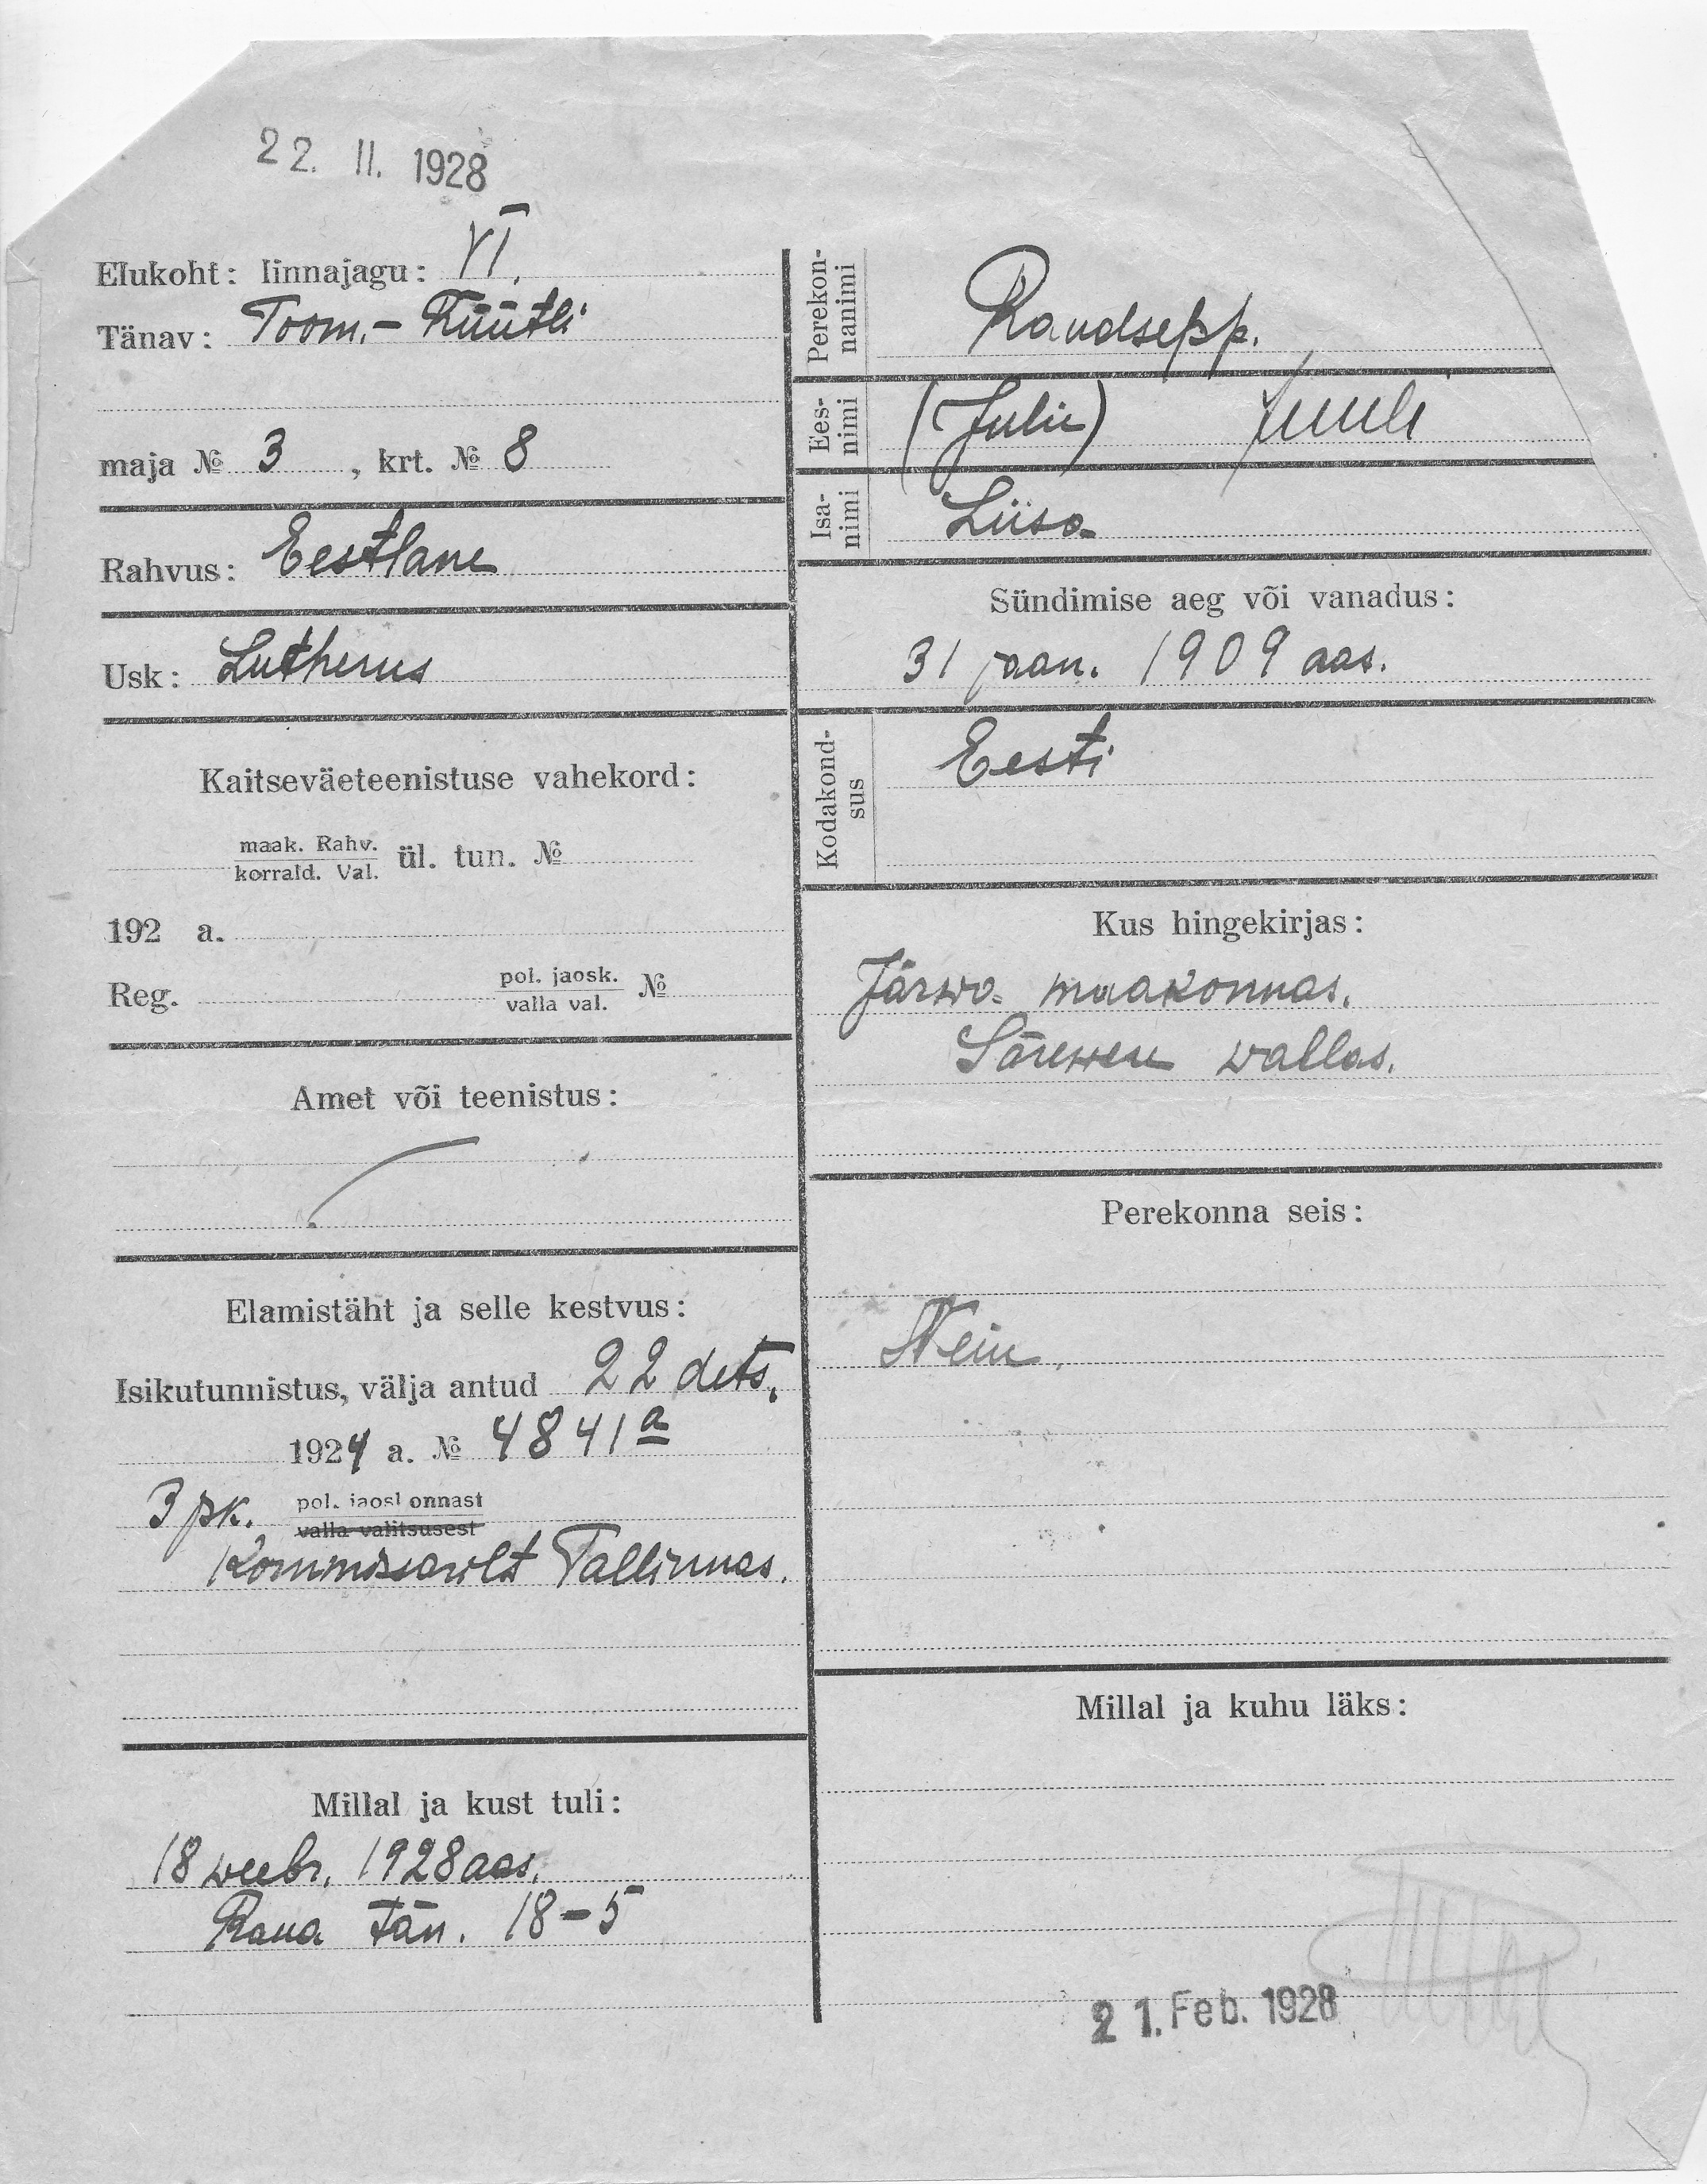 22. II. 1928
Elukoht: linnajagu: VI.
Tänav: Toom.- Rüütli
maja № 3, krt. № 8
Rahvus: Eestlane
Usk: Lutherus
Kaitseväeteenistuse vahekord:
maak. Rahv.
korrald. Val. ül. tun. №
192 a.
Reg. pol. jaosk. №
valla val.
Amet või teenistus:
Elamistäht ja selle kestvus:
Isikutunnistus, välja antud 22 dets.
1924 a. № 4841a
3 pk. pol. jaoskonnast
valla valitsusest
Kommissarilt Tallinnas.
Millal ja kust tuli:
18 weebr. 1928 aas.
Raua tän. 18-5
Perekon-
nanimi Raudsepp.
Ees-
nimi (Julie) Juuli
Isa-
nimi Liisa
Sündimise aeg või vanadus:
31 jaan. 1909 aas.
Kodakond-
sus Eesti
Kus hingekirjas:
Järwa maakonnas.
Särewere wallas.
Perekonna seis:
Neiu.
Millal ja kuhu läks:
21. Feb. 1928